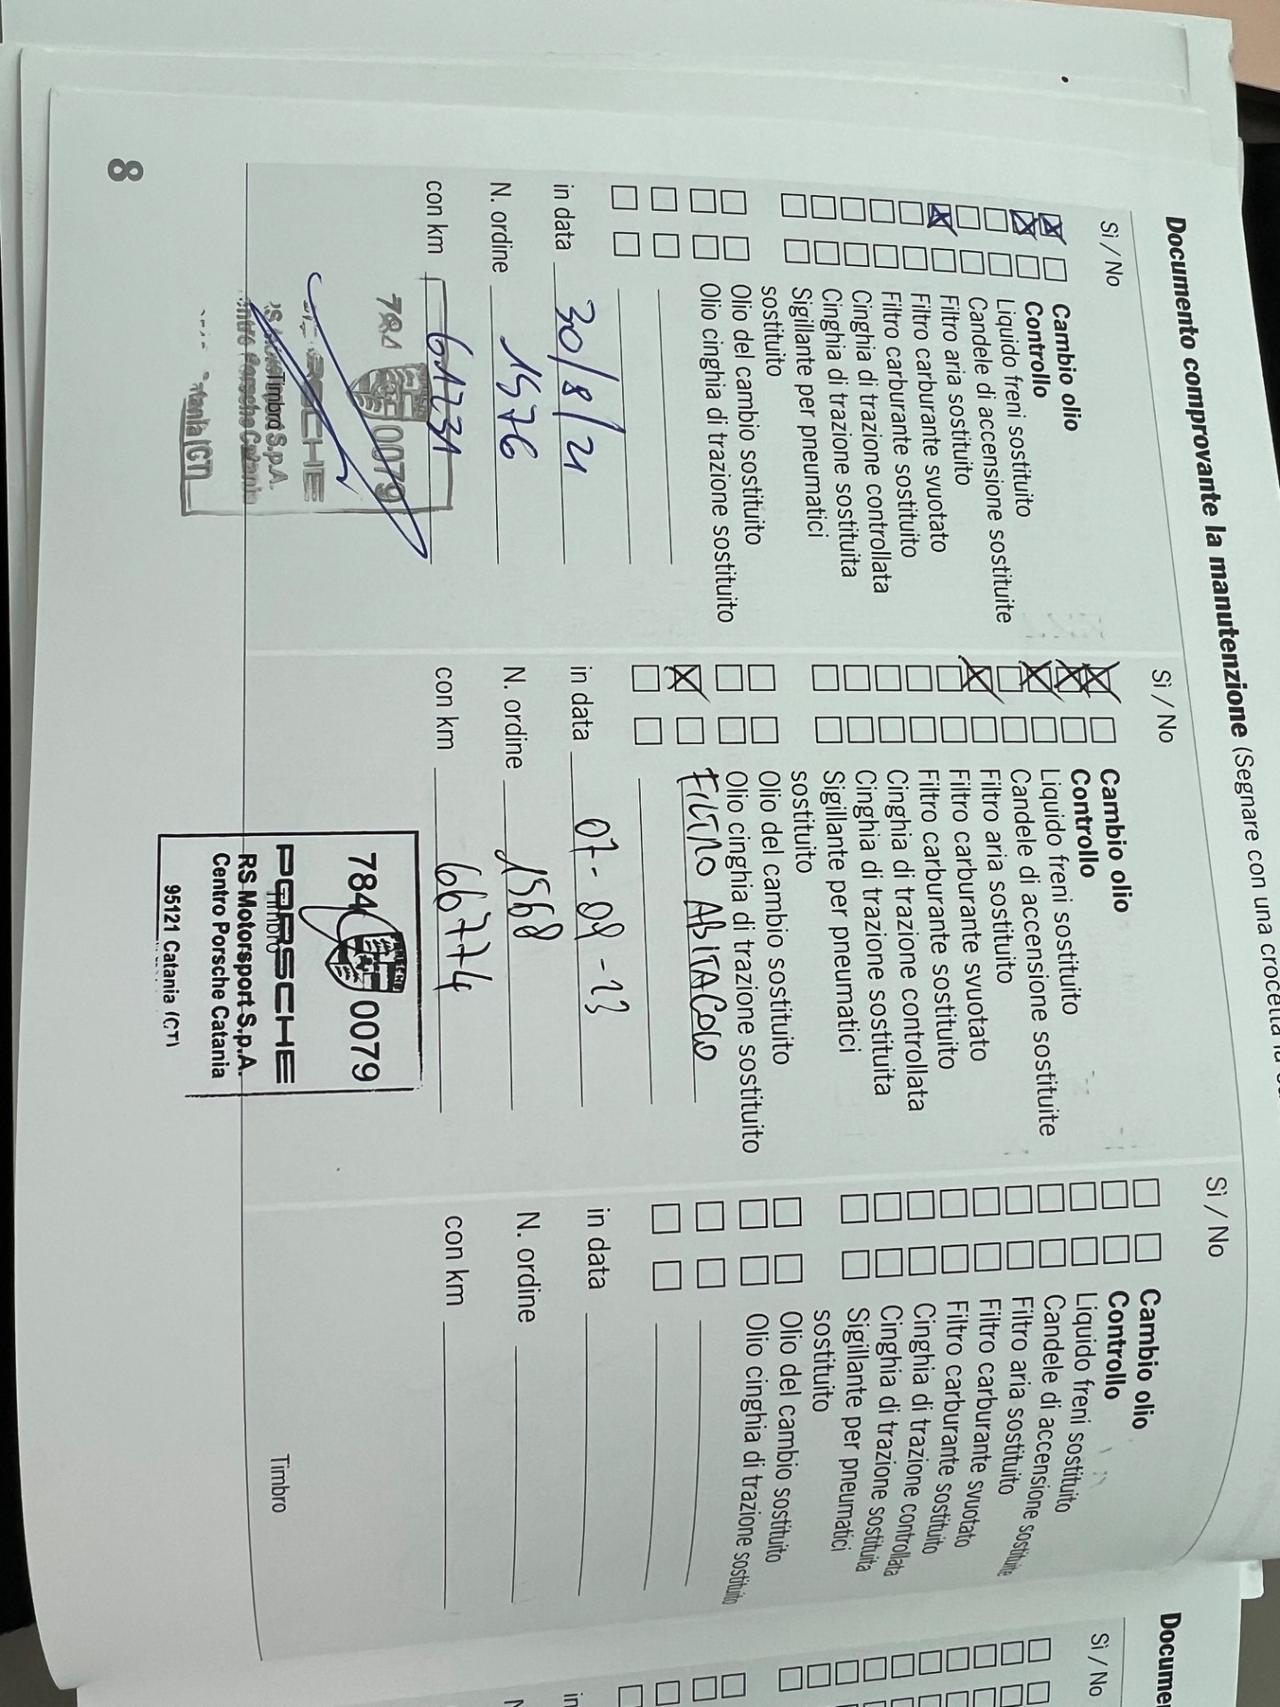 Documento comprovante la manutenzione (Segnare con una crocetta la
Sì / No
Cambio olio
Controllo
Liquido freni sostituito
Candele di accensione sostituite
Filtro aria sostituito
Filtro carburante svuotato
Filtro carburante sostituito
Cinghia di trazione controllata
Cinghia di trazione sostituita
Sigillante per pneumatici
sostituito
Olio del cambio sostituito
Olio cinghia di trazione sostituito
in data 30/8/21
N. ordine 1576
con km 61731
784 0079
PORSCHE
Timbro S.p.A.
Centro Porsche Catania
Catania (CT)
Sì / No
Cambio olio
Controllo
Liquido freni sostituito
Candele di accensione sostituite
Filtro aria sostituito
Filtro carburante svuotato
Filtro carburante sostituito
Cinghia di trazione controllata
Cinghia di trazione sostituita
Sigillante per pneumatici
sostituito
Olio del cambio sostituito
Olio cinghia di trazione sostituito
FILTRO ABITACOLO
in data 07-09-23
N. ordine 1568
con km 66774
784 0079
PORSCHE
Timbro
RS Motorsport S.p.A.
Centro Porsche Catania
95121 Catania (CT)
Sì / No
Cambio olio
Controllo
Liquido freni sostituito
Candele di accensione sostituite
Filtro aria sostituito
Filtro carburante svuotato
Filtro carburante sostituito
Cinghia di trazione controllata
Cinghia di trazione sostituita
Sigillante per pneumatici
sostituito
Olio del cambio sostituito
Olio cinghia di trazione sostituito
in data
N. ordine
con km
Timbro
8
Docume
Sì / No
in
N